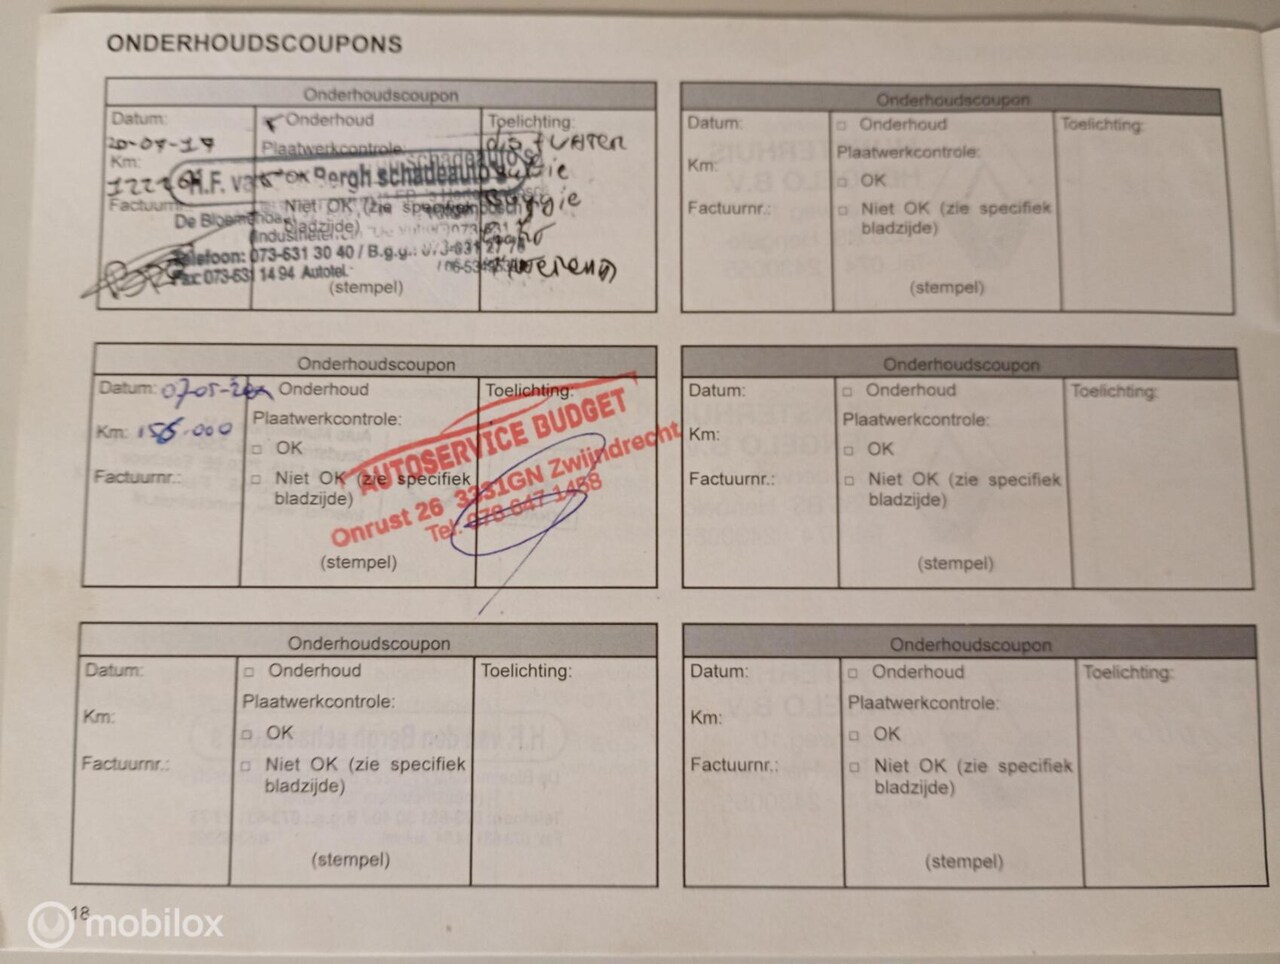 ONDERHOUDSCOUPONS
Onderhoudscoupon
Datum:
20-07-17
Km:
Factuurnr.:
Onderhoud
Plaatwerkcontrole:
OK
Niet OK (zie specifiek
bladzijde)
(stempel)
Toelichting:
H.F. van Bergh schadeauto's
Telefoon: 073-631 30 40 / B.g.g.:
Fax: 073-631 14 94 Autotel.
Onderhoudscoupon
Datum:
Km:
Factuurnr.:
Onderhoud
Plaatwerkcontrole:
OK
Niet OK (zie specifiek
bladzijde)
(stempel)
Toelichting:
Onderhoudscoupon
Datum: 07-05-
Km: 156.000
Factuurnr.:
Onderhoud
Plaatwerkcontrole:
OK
Niet OK (zie specifiek
bladzijde)
(stempel)
Toelichting:
AUTOSERVICE BUDGET
Onrust 26 3331GN Zwijndrecht
Tel. 078 647 1458
Onderhoudscoupon
Datum:
Km:
Factuurnr.:
Onderhoud
Plaatwerkcontrole:
OK
Niet OK (zie specifiek
bladzijde)
(stempel)
Toelichting:
Onderhoudscoupon
Datum:
Km:
Factuurnr.:
Onderhoud
Plaatwerkcontrole:
OK
Niet OK (zie specifiek
bladzijde)
(stempel)
Toelichting:
Onderhoudscoupon
Datum:
Km:
Factuurnr.:
Onderhoud
Plaatwerkcontrole:
OK
Niet OK (zie specifiek
bladzijde)
(stempel)
Toelichting:
18
mobilox